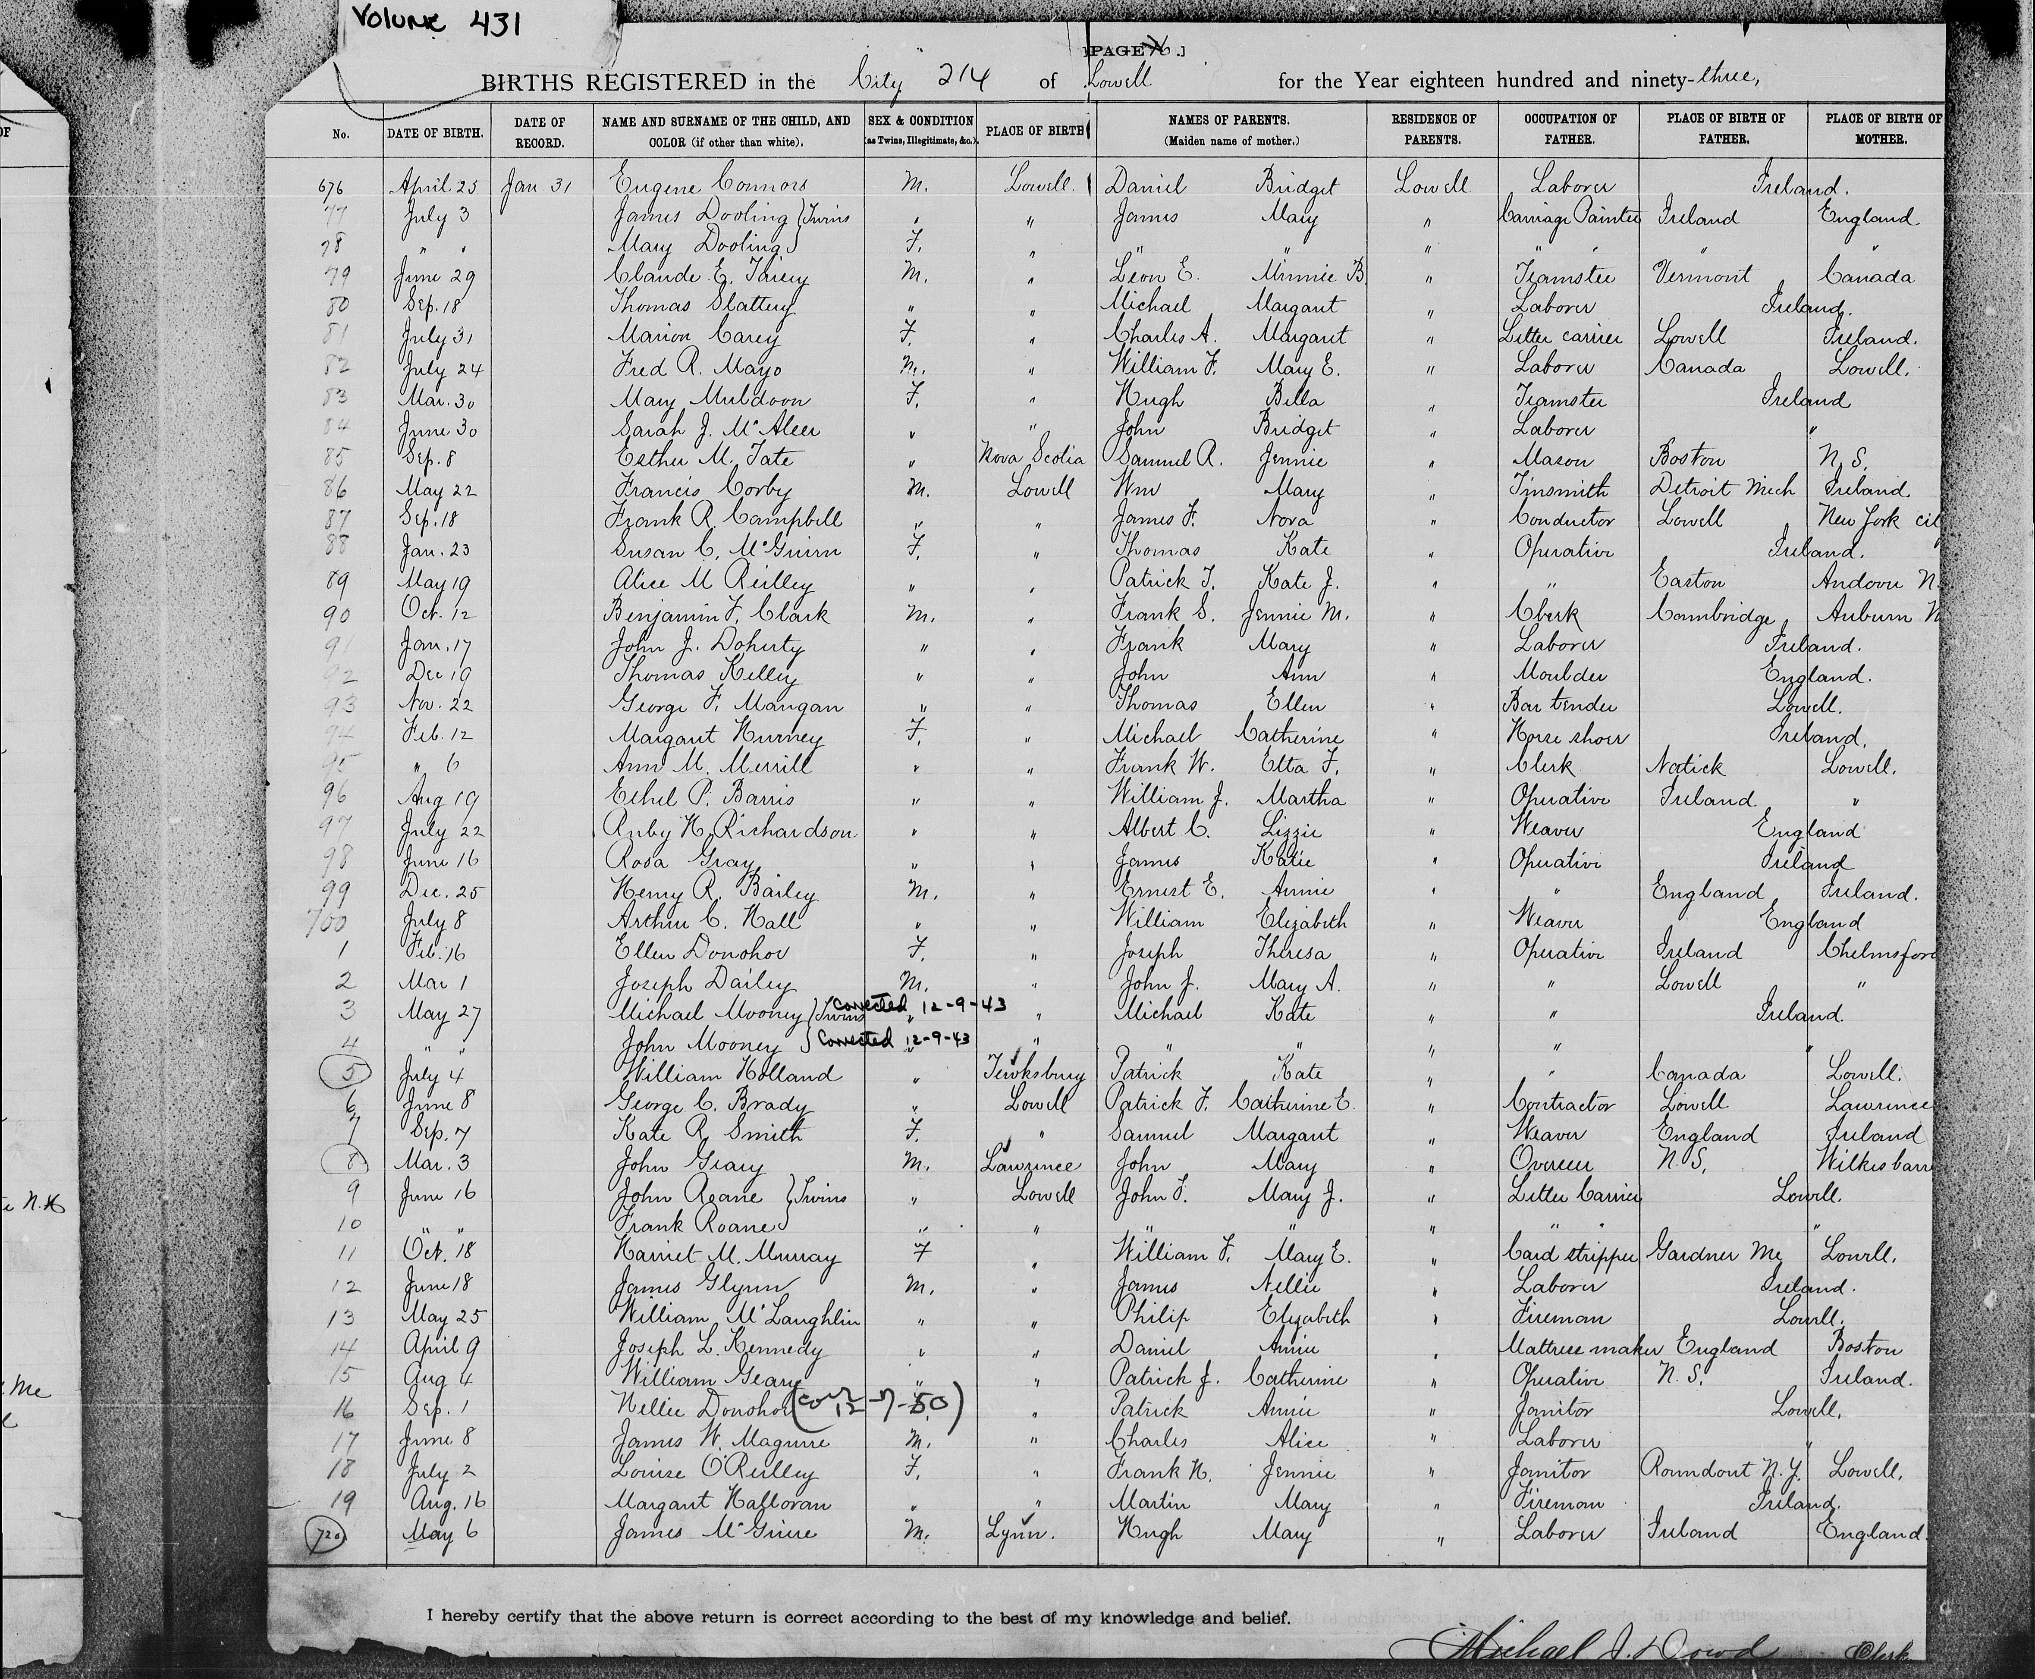 Volume 431
[PAGE .]
BIRTHS REGISTERED in the City 214 of Lowell for the Year eighteen hundred and ninety-three,
No. DATE OF BIRTH. DATE OF RECORD. NAME AND SURNAME OF THE CHILD, AND COLOR (if other than white). SEX & CONDITION (as Twins, Illegitimate, &c.). PLACE OF BIRTH NAMES OF PARENTS. (Maiden name of mother.) RESIDENCE OF PARENTS. OCCUPATION OF FATHER. PLACE OF BIRTH OF FATHER. PLACE OF BIRTH OF MOTHER.
676 April 25 Jan 31 Eugene Connors M. Lowell. Daniel Bridget Lowell Laborer Ireland.
77 July 3 James Dooling } Twins " " James Mary " Carriage Painter Ireland England
78 " " Mary Dooling } F. " " " " " " " "
79 June 29 Claude E. M. " Leon E. Minnie B " Teamster Vermont Canada
80 Sep. 18 Thomas Slattery " " Michael Margaret " Laborer Ireland.
81 July 31 Marion Carey F. " Charles A. Margaret " Letter carrier Lowell Ireland.
82 July 24 Fred R. Mayo M. " William F. Mary E. " Laborer Canada Lowell.
83 Mar. 30 Mary Muldoon F. " Hugh Bella " Teamster Ireland
84 June 30 Sarah J. McAleer " " John Bridget " Laborer "
85 Sep. 8 Esther M. Tate " Nova Scotia Samuel R. Jennie " Mason Boston N. S.
86 May 22 Francis Corby M. Lowell Wm Mary " Tinsmith Detroit Mich Ireland.
87 Sep. 18 Frank R. Campbell " " James F. Nora " Conductor Lowell New York cit
88 Jan. 23 Susan C. McGuinn F. " Thomas Kate " Operative Ireland.
89 May 19 Alice M Reilley " " Patrick T. Kate J. " " Easton Andover N.
90 Oct. 12 Benjamin F. Clark M. " Frank S. Jennie M. " Clerk Cambridge Auburn N
91 Jan. 17 John J. Doherty " " Frank Mary " Laborer Ireland.
92 Dec 19 Thomas Kelley " " John Ann " Moulder England.
93 Nov. 22 George F. Mangan " " Thomas Ellen " Bar tender Lowell.
94 Feb. 12 Margaret Hurney F. " Michael Catherine " Horse shoer Ireland.
95 " 6 Ann M. Merrill " " Frank W. Etta F. " Clerk Natick Lowell.
96 Aug 19 Ethel P. Barris " " William J. Martha " Operative Ireland. "
97 July 22 Ruby H. Richardson " " Albert C. Lizzie " Weaver England
98 June 16 Rosa Gray " " James Katie " Operative Ireland
99 Dec. 25 Henry R. Bailey M. " Ernest E. Annie " " England Ireland.
700 July 8 Arthur C. Hall " " William Elizabeth " Weaver England
1 Feb. 16 Ellen Donohoe F. " Joseph Theresa " Operative Ireland Chelmsford
2 Mar 1 Joseph Dailey M. " John J. Mary A. " " Lowell "
3 May 27 Michael Mooney } Twins Corrected 12-9-43 " " Michael Kate " " Ireland.
4 " " John Mooney } Corrected 12-9-43 " " " " " " "
5 July 4 William Holland " Tewksbury Patrick Kate " " Canada Lowell.
6 June 8 George C. Brady " Lowell Patrick F. Catherine E. " Contractor Lowell Lawrence
7 Sep. 7 Kate R. Smith F. " Samuel Margaret " Weaver England Ireland
8 Mar. 3 John Geary M. Lawrence John Mary " Overseer N. S. Wilkesbarr
9 June 16 John Roane } Twins " Lowell John F. Mary J. " Letter Carrier Lowell.
10 " " Frank Roane } " " " " " " " "
11 Oct. 18 Harriet M. Murray F " William F. Mary E. " Card stripper Gardner Me Lowell.
12 June 18 James Glynn M. " James Nellie " Laborer Ireland.
13 May 25 William McLaughlin " " Philip Elizabeth " Fireman Lowell.
14 April 9 Joseph L. Kennedy " " Daniel Annie " Mattress maker England Boston
15 Aug 4 William Geary " " Patrick J. Catherine " Operative N. S. Ireland.
16 Sep. 1 Nellie Donohoe (corr 12-7-50) " Patrick Annie " Janitor Lowell.
17 June 8 James W. Maguire M. " Charles Alice " Laborer "
18 July 2 Louise O'Reilley F. " Frank H. Jennie " Janitor Roundout N. Y. Lowell.
19 Aug. 16 Margaret Halloran " " Martin Mary " Fireman Ireland.
720 May 6 James McGuire M. Lynn. Hugh Mary " Laborer Ireland England.
I hereby certify that the above return is correct according to the best of my knowledge and belief.
Michael J. Dowd Clerk
e N.H
Me